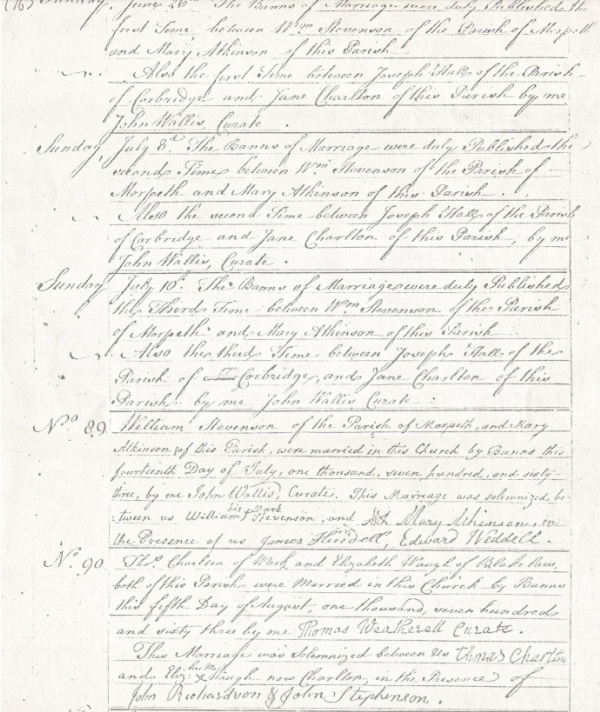 Sunday, June 26th. The Banns of Marriage were duly Published the
first Time, between Wm Stevenson of the Parish of Morpeth
and Mary Atkinson of this Parish
Also the first Time between Joseph Hall of the Parish
of Corbridge and Jane Charlton of this Parish by me
John Wallis, Curate.
Sunday, July 3d. The Banns of Marriage were duly Published the
second Time between Wm Stevenson of the Parish of
Morpeth and Mary Atkinson of this Parish.
Also the second Time between Joseph Hall of the Parish
of Corbridge and Jane Charlton of this Parish, by me
John Wallis, Curate.
Sunday July 10th. The Banns of Marriage were duly Published
the Third Time between Wm Stevenson of the Parish
of Morpeth and Mary Atkinson of this Parish
Also the third Time between Joseph Hall of the
Parish of Corbridge, and Jane Charlton of this
Parish by me John Wallis Curate:
No. 89 William Stevenson of the Parish of Morpeth, and Mary
Atkinson of this Parish, were married in this Church by Banns this
fourteenth Day of July, one thousand, seven hundred, and sixty-
three, by me John Wallis, Curate. This Marriage was solemnized, be-
:tween us William his mark Stevenson, and Mary Atkinson, in
the Presence of us James Hindell, Edward Weddell.
No. 90 Thos. Charlton of Wark and Elizabeth Waugh of Blakelaw,
both of this Parish were Married in this Church by Banns
this fifth Day of August, one thousand, seven hundred
and sixty three by me Thomas Weatherell Curate.
This Marriage was Solemnized between Us Thmas Charlton
and Eliz: her Mark X Waugh now Charlton, in the Presence of
John Richardson & John Stephenson.